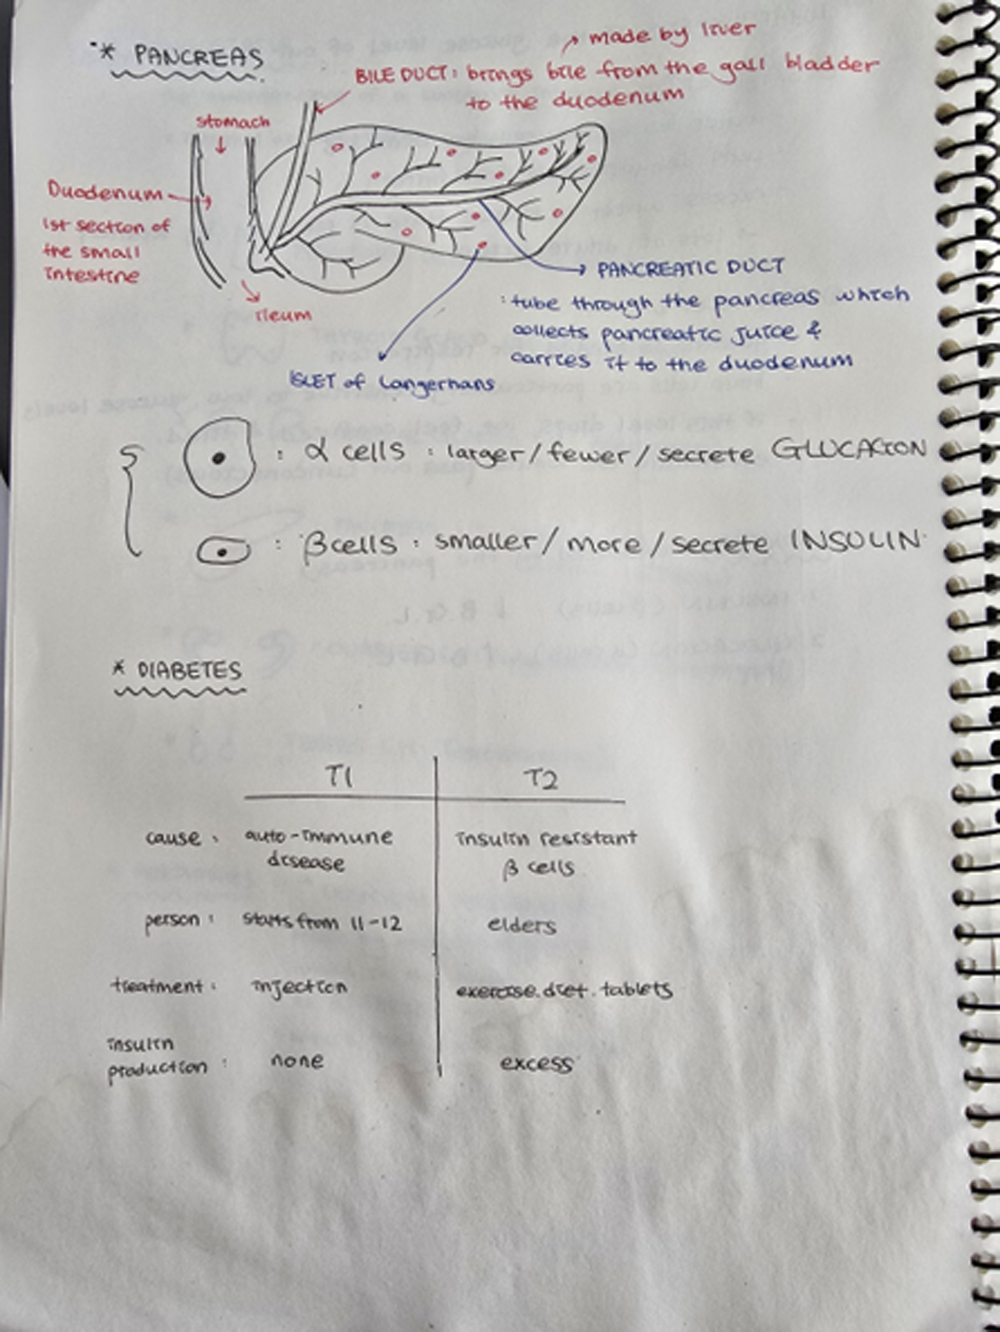 * PANCREAS
made by liver
BILE DUCT : brings bile from the gall bladder
to the duodenum
stomach
Duodenum
1st section of
the small
intestine
ileum
PANCREATIC DUCT
: tube through the pancreas which
collects pancreatic juice &
carries it to the duodenum
ISLET of Langerhans
: α cells : larger / fewer / secrete GLUCAGON
: β cells : smaller / more / secrete INSULIN
* DIABETES
T1 T2
cause : auto-immune insulin resistant
disease β cells
person : starts from 11-12 elders
treatment : injection exercise. diet. tablets
insulin
production : none excess